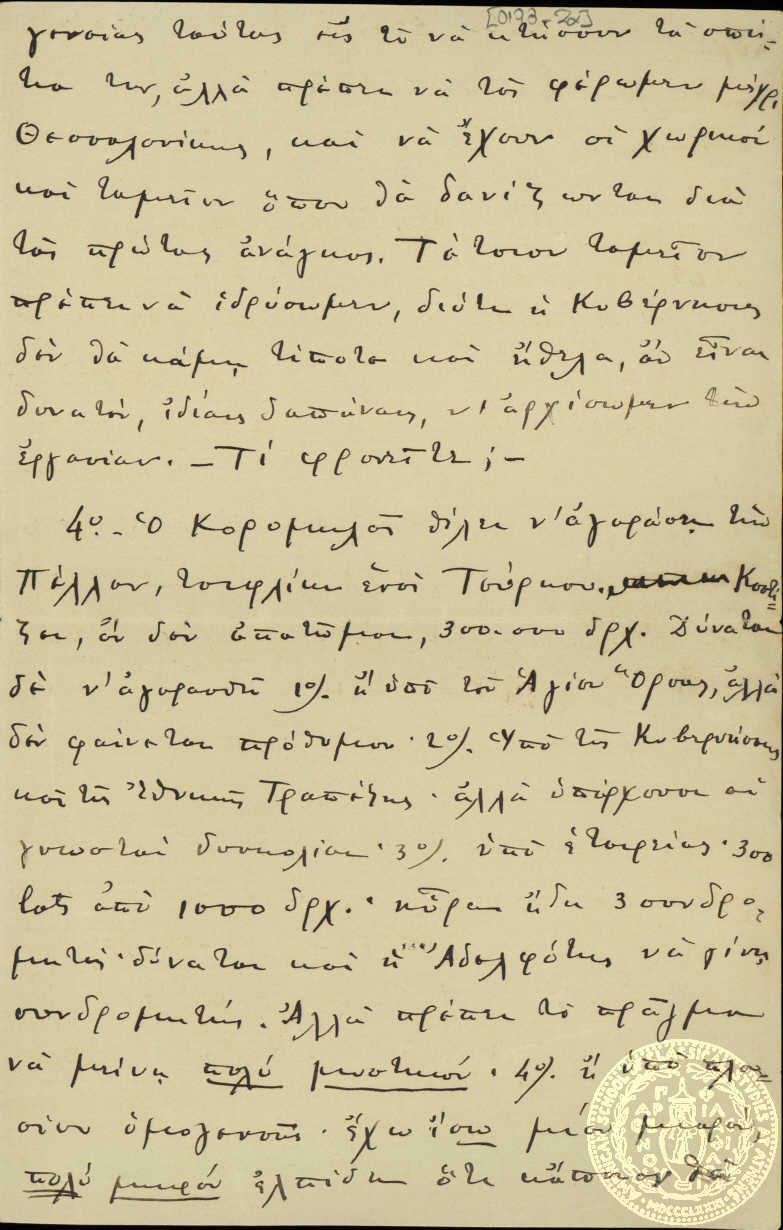 [0193 - 2α]
γενείας ταύτας εἰς τὸ νὰ κτίσουν τὰ σπίτ-
τια των, ἀλλὰ πρέπει νὰ τὸς φέρωμεν μέχρι
Θεσσαλονίκης, καὶ νὰ ἔχουν οἱ χωρικοί
καὶ ταμεῖον ὅπου θὰ δανίζωνται διὰ
τὰς πρώτας ἀνάγκας. Τὸ τοιον ταμεῖον
πρέπει νὰ ἱδρύσωμεν, διότι ἡ Κυβέρνησις
δὲν θὰ κάμῃ τίποτε καὶ ἤθελα, ἂν εἶναι
δυνατόν, ἰδίαις δαπάναις, ν' ἀρχίσωμεν τὴν
ἐργασίαν. — Τί φρονεῖτε; —
4ον. - Ὁ Κορομηλᾶς θέλει ν' ἀγοράσῃ τὴν
Πέλλαν, τσιφλίκι ἑνὸς Τούρκου. Κοστί-
ζει, ἂν δὲν ἀπατῶμαι, 300.000 δρχ. Δύναται
δὲ ν' ἀγορασθῇ 1ο). ἢ ὑπὸ τοῦ Ἁγίου Ὄρους, ἀλλὰ
δὲν φαίνεται πρόθυμον· 2ο). Ὑπὸ τῆς Κυβερνήσεως
καὶ τῆς Ἐθνικῆς Τραπέζης· ἀλλὰ ὑπάρχουσι αἱ
γνωσταὶ δυσκολίαι· 3ο). ὑπὸ ἑταιρείας· 300
ἀπὸ 1000 δρχ.· ηὗρα ἤδη 3 συνδρο-
μητάς· δύναται καὶ ἡ "Ἀδελφότης" νὰ γίνῃ
συνδρομητής. Ἀλλὰ πρέπει τὸ πρᾶγμα
νὰ μείνῃ πολύ μυστικόν· 4ο). ἢ ὑπὸ πλου-
σίου ὁμογενοῦς· ἔχω ἴσως μίαν μικρὰν,
πολύ μικρὰν ἐλπίδα ὅτι κάποιον θὰ